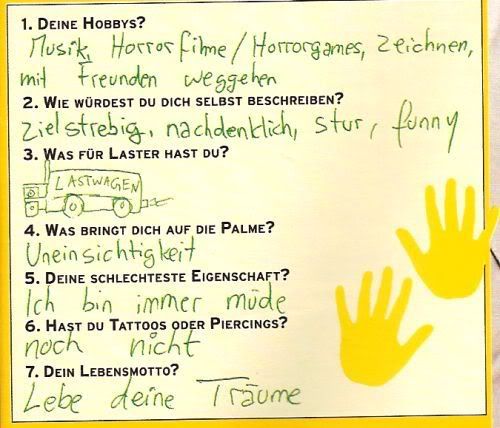 1. DEINE HOBBYS?
Musik, Horrorfilme/Horrorgames, zeichnen,
mit Freunden weggehen
2. WIE WÜRDEST DU DICH SELBST BESCHREIBEN?
zielstrebig, nachdenklich, stur, funny
3. WAS FÜR LASTER HAST DU?
LASTWAGEN
4. WAS BRINGT DICH AUF DIE PALME?
Uneinsichtigkeit
5. DEINE SCHLECHTESTE EIGENSCHAFT?
Ich bin immer müde
6. HAST DU TATTOOS ODER PIERCINGS?
noch nicht
7. DEIN LEBENSMOTTO?
Lebe deine Träume